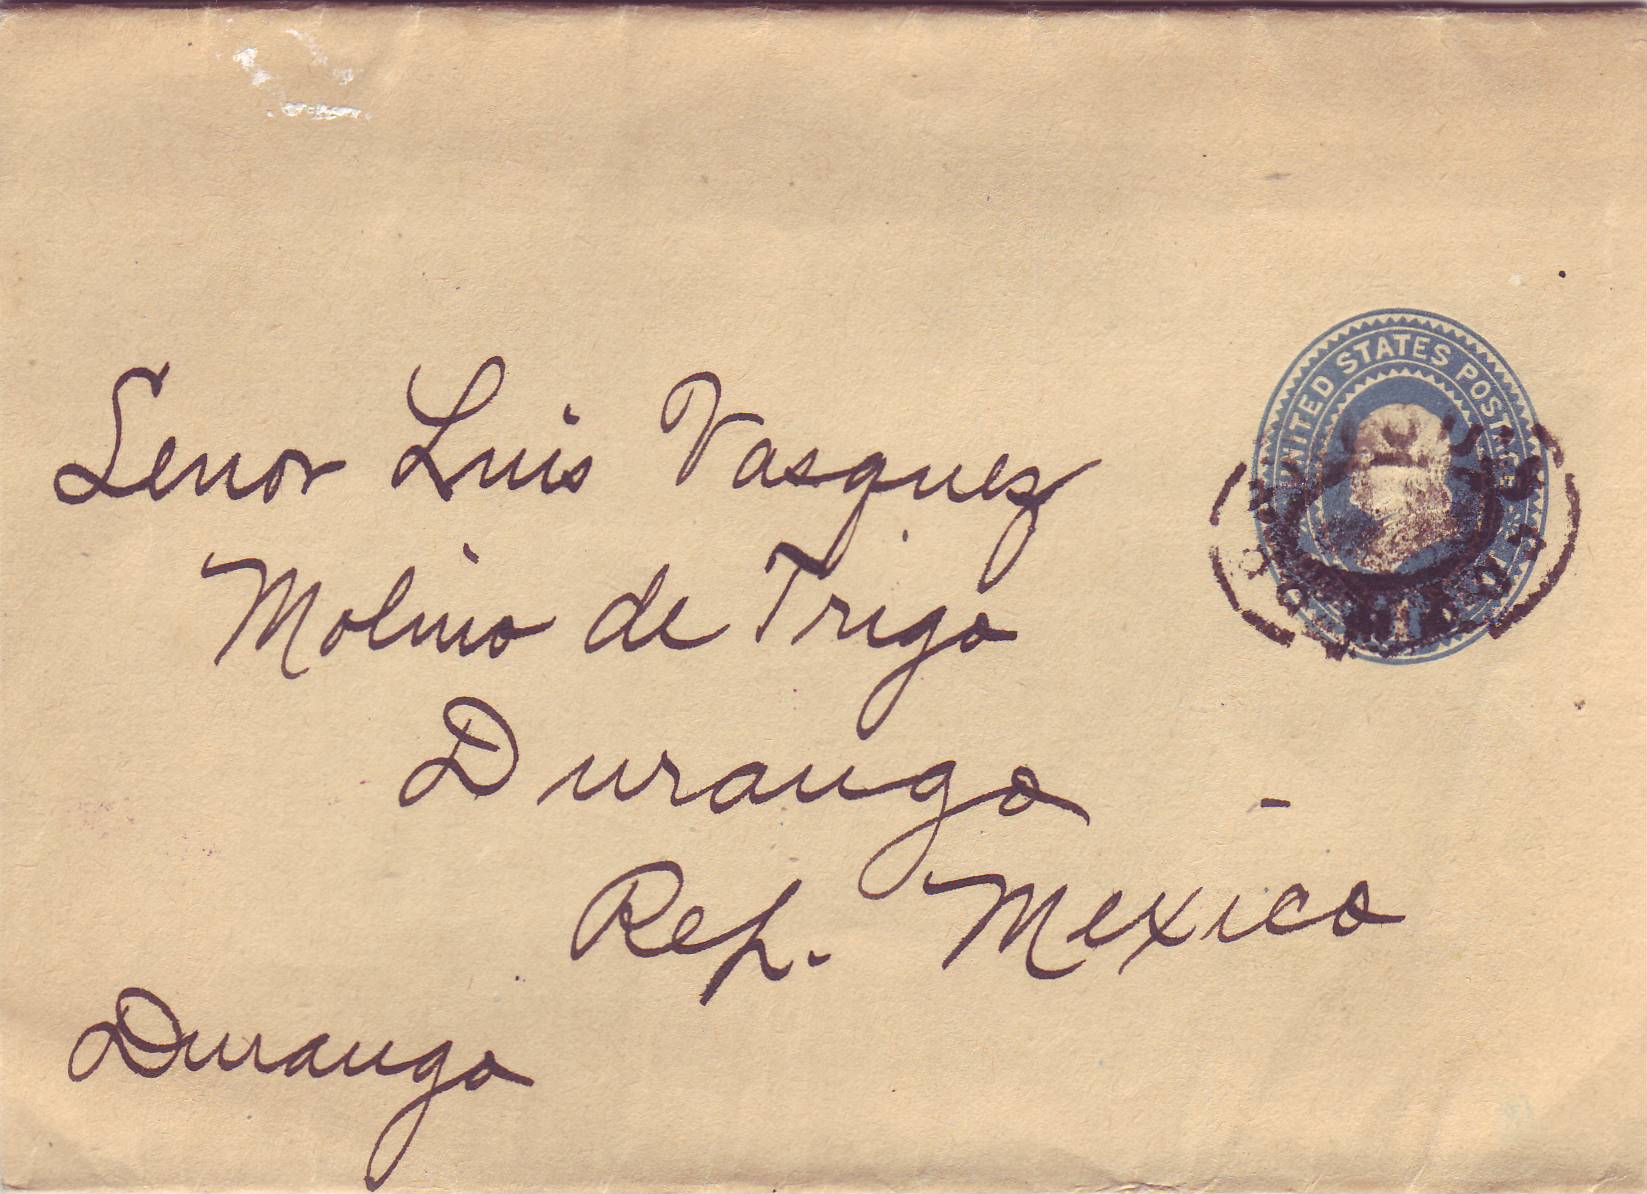 UNITED STATES POSTAGE
Senor Luis Vasquez
Molino de Trigo
Durango -
Rep. Mexico
Durango